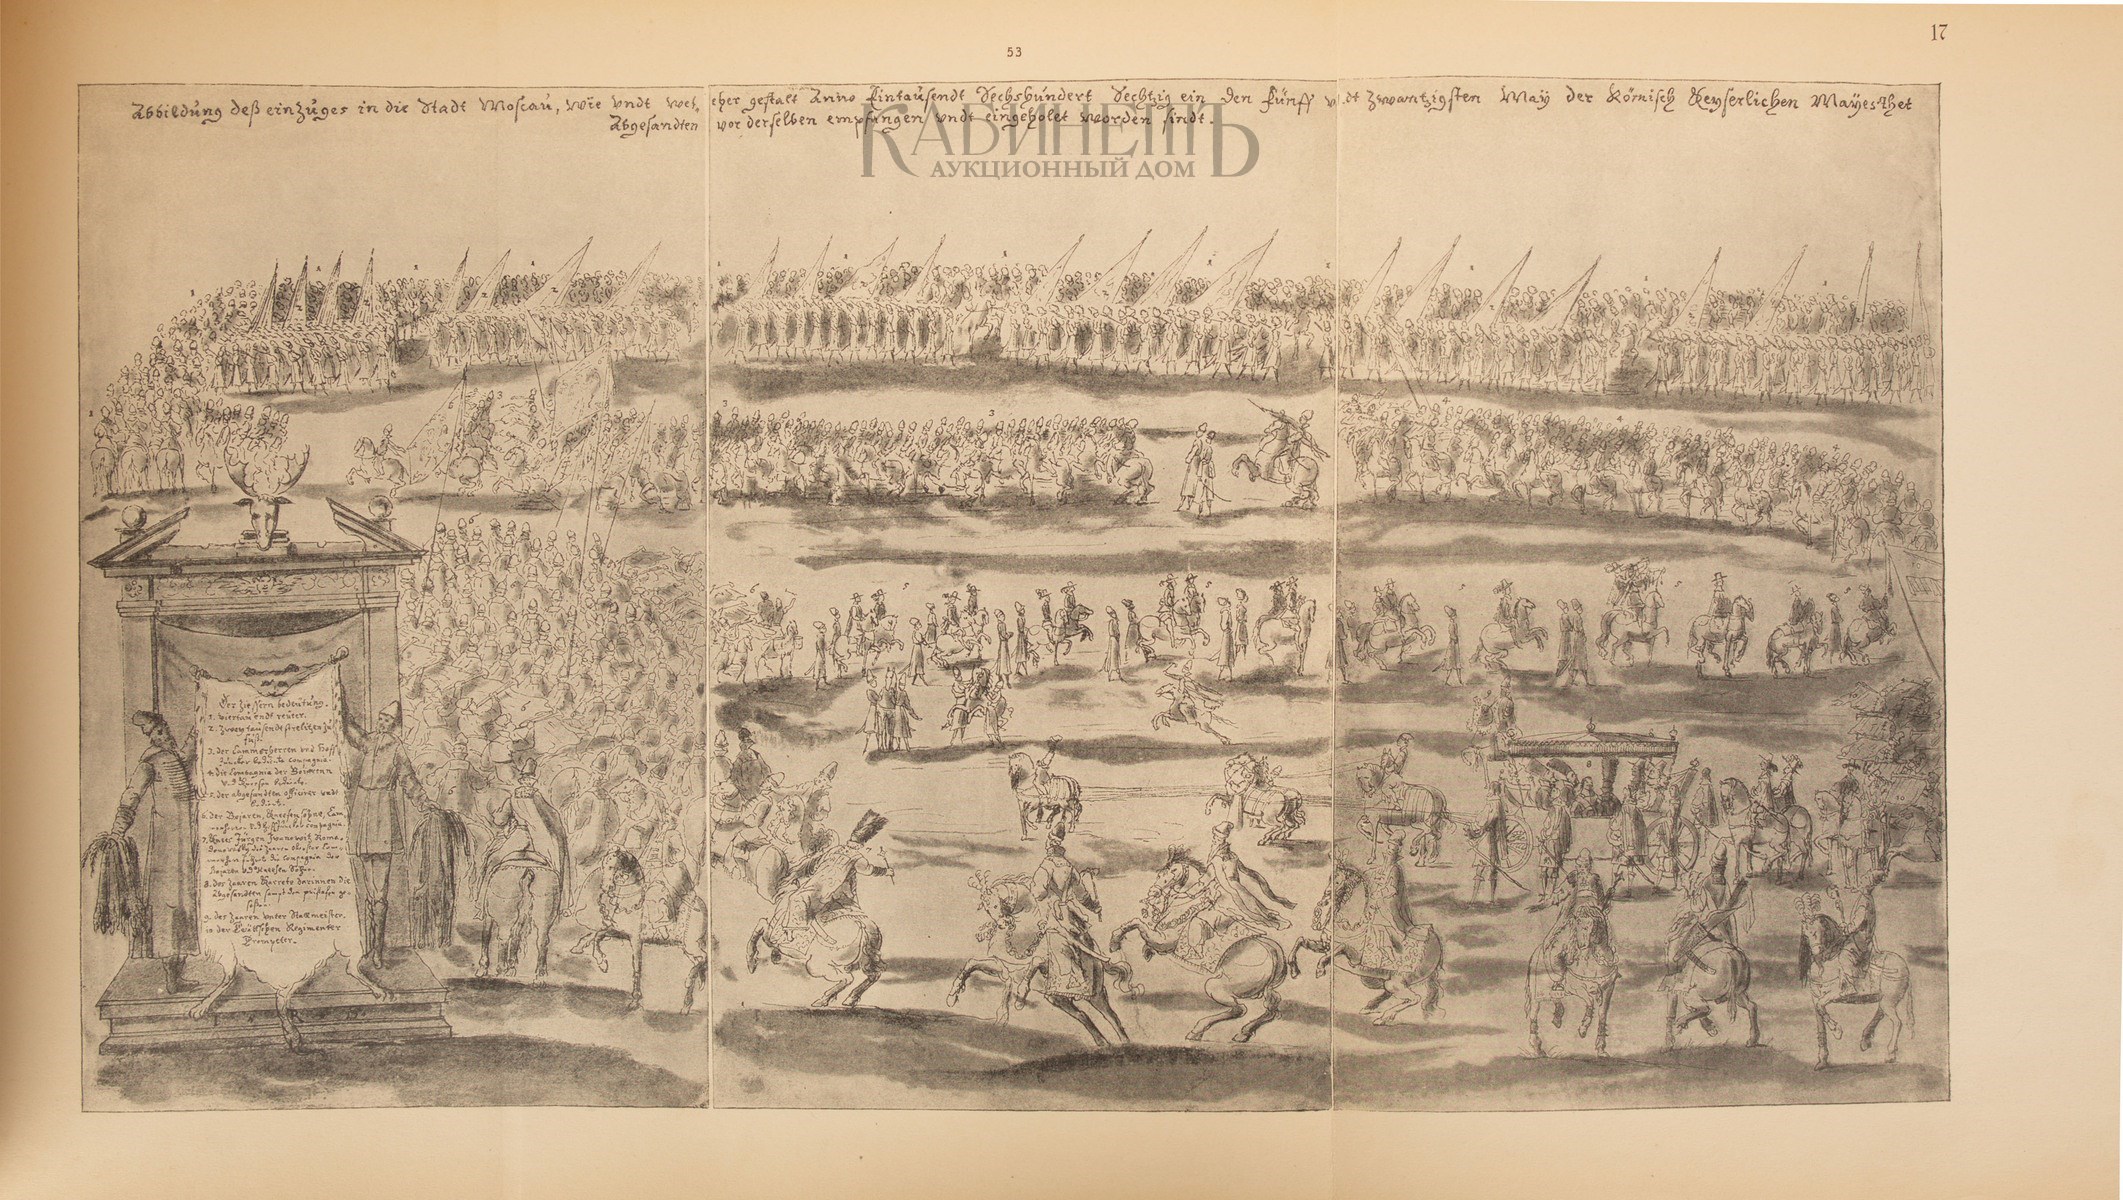 17
53
Abbildung deß einzuges in die Stadt Moscau, wie undt welcher gestalt Anno Eintausendt Sechshundert Sechtzig ein den fünff undt zwantzigsten May der Römisch Keyserlichen Mayesthet
Abgesandten vor derselben empfangen undt eingeholet worden sindt.
КАБИНЕТЪ
АУКЦИОННЫЙ ДОМ
Der Zieffern bedeutung.
1. viertausendt reuter.
2. Zwey tausendt strelitzen zu
fuß.
3. der Cammerherren und Hoff
compagnia.
4. die Compagnia der Boijaren
5. der abgesandten officirer undt
6. der Bojaren, Knessen söhne, Cam
compagnia
7. Knes Jürgen Iwanowitz Roma
danowsky des Zaaren
führt die Compagnia der
Bojaren
8. der Zaaren Karreta darinnen die
Abgesandten sampt den pristafen ge
9. der Zaaren unter Stallmeister.
10. der Regimenter
Trompeter.